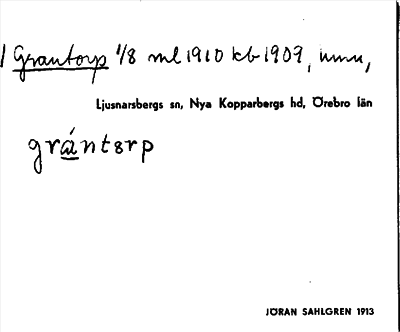 Grantorp 1/8 ml 1910 kb 1909,
Ljusnarsbergs sn, Nya Kopparbergs hd, Örebro län
grántɜrp
JÖRAN SAHLGREN 1913